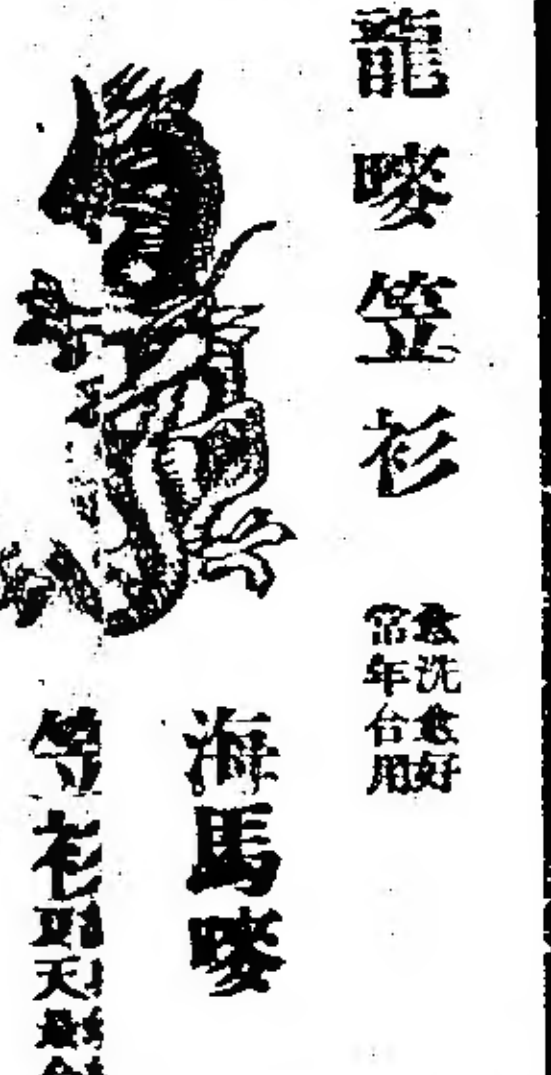 龍嘜笠衫
愈洗愈好
常年合用
海馬嘜
笠衫
夏天最